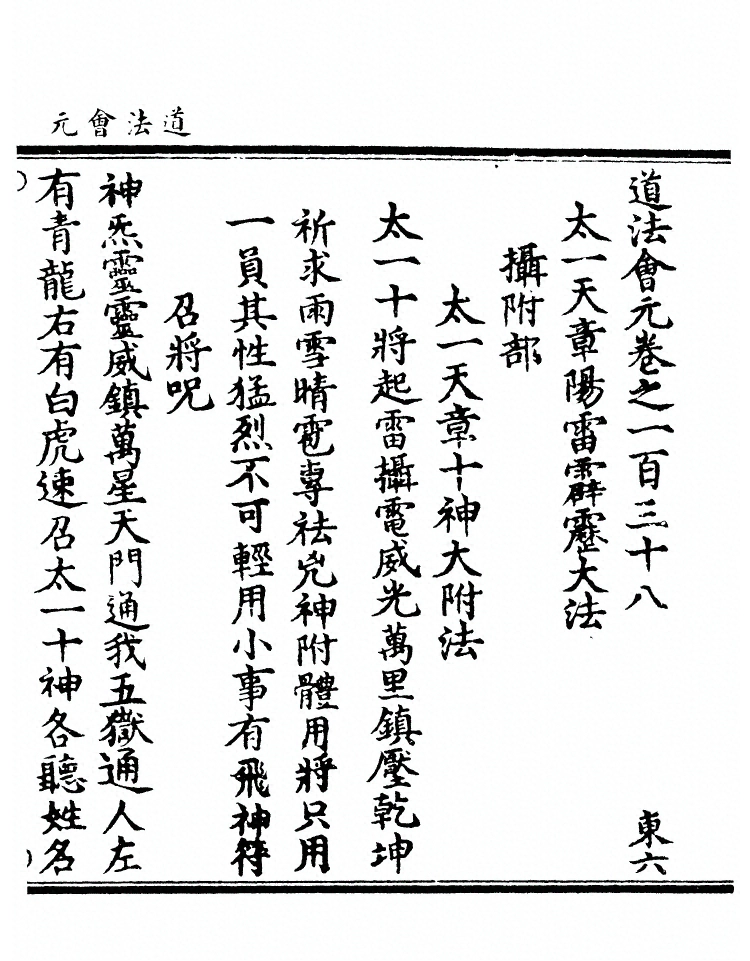 道法會元
道法會元卷之一百三十八 東六
太一天章陽雷霹靂大法
攝附部
太一天章十神大附法
太一十將起雷攝電威光萬里鎮壓乾坤
祈求雨雪晴雹專祛兇神附體用將只用
一員其性猛烈不可輕用小事有飛神符
召將呪
神炁靈靈威鎮萬星天門通我五嶽通人左
有青龍右有白虎速召太一十神各聽姓名